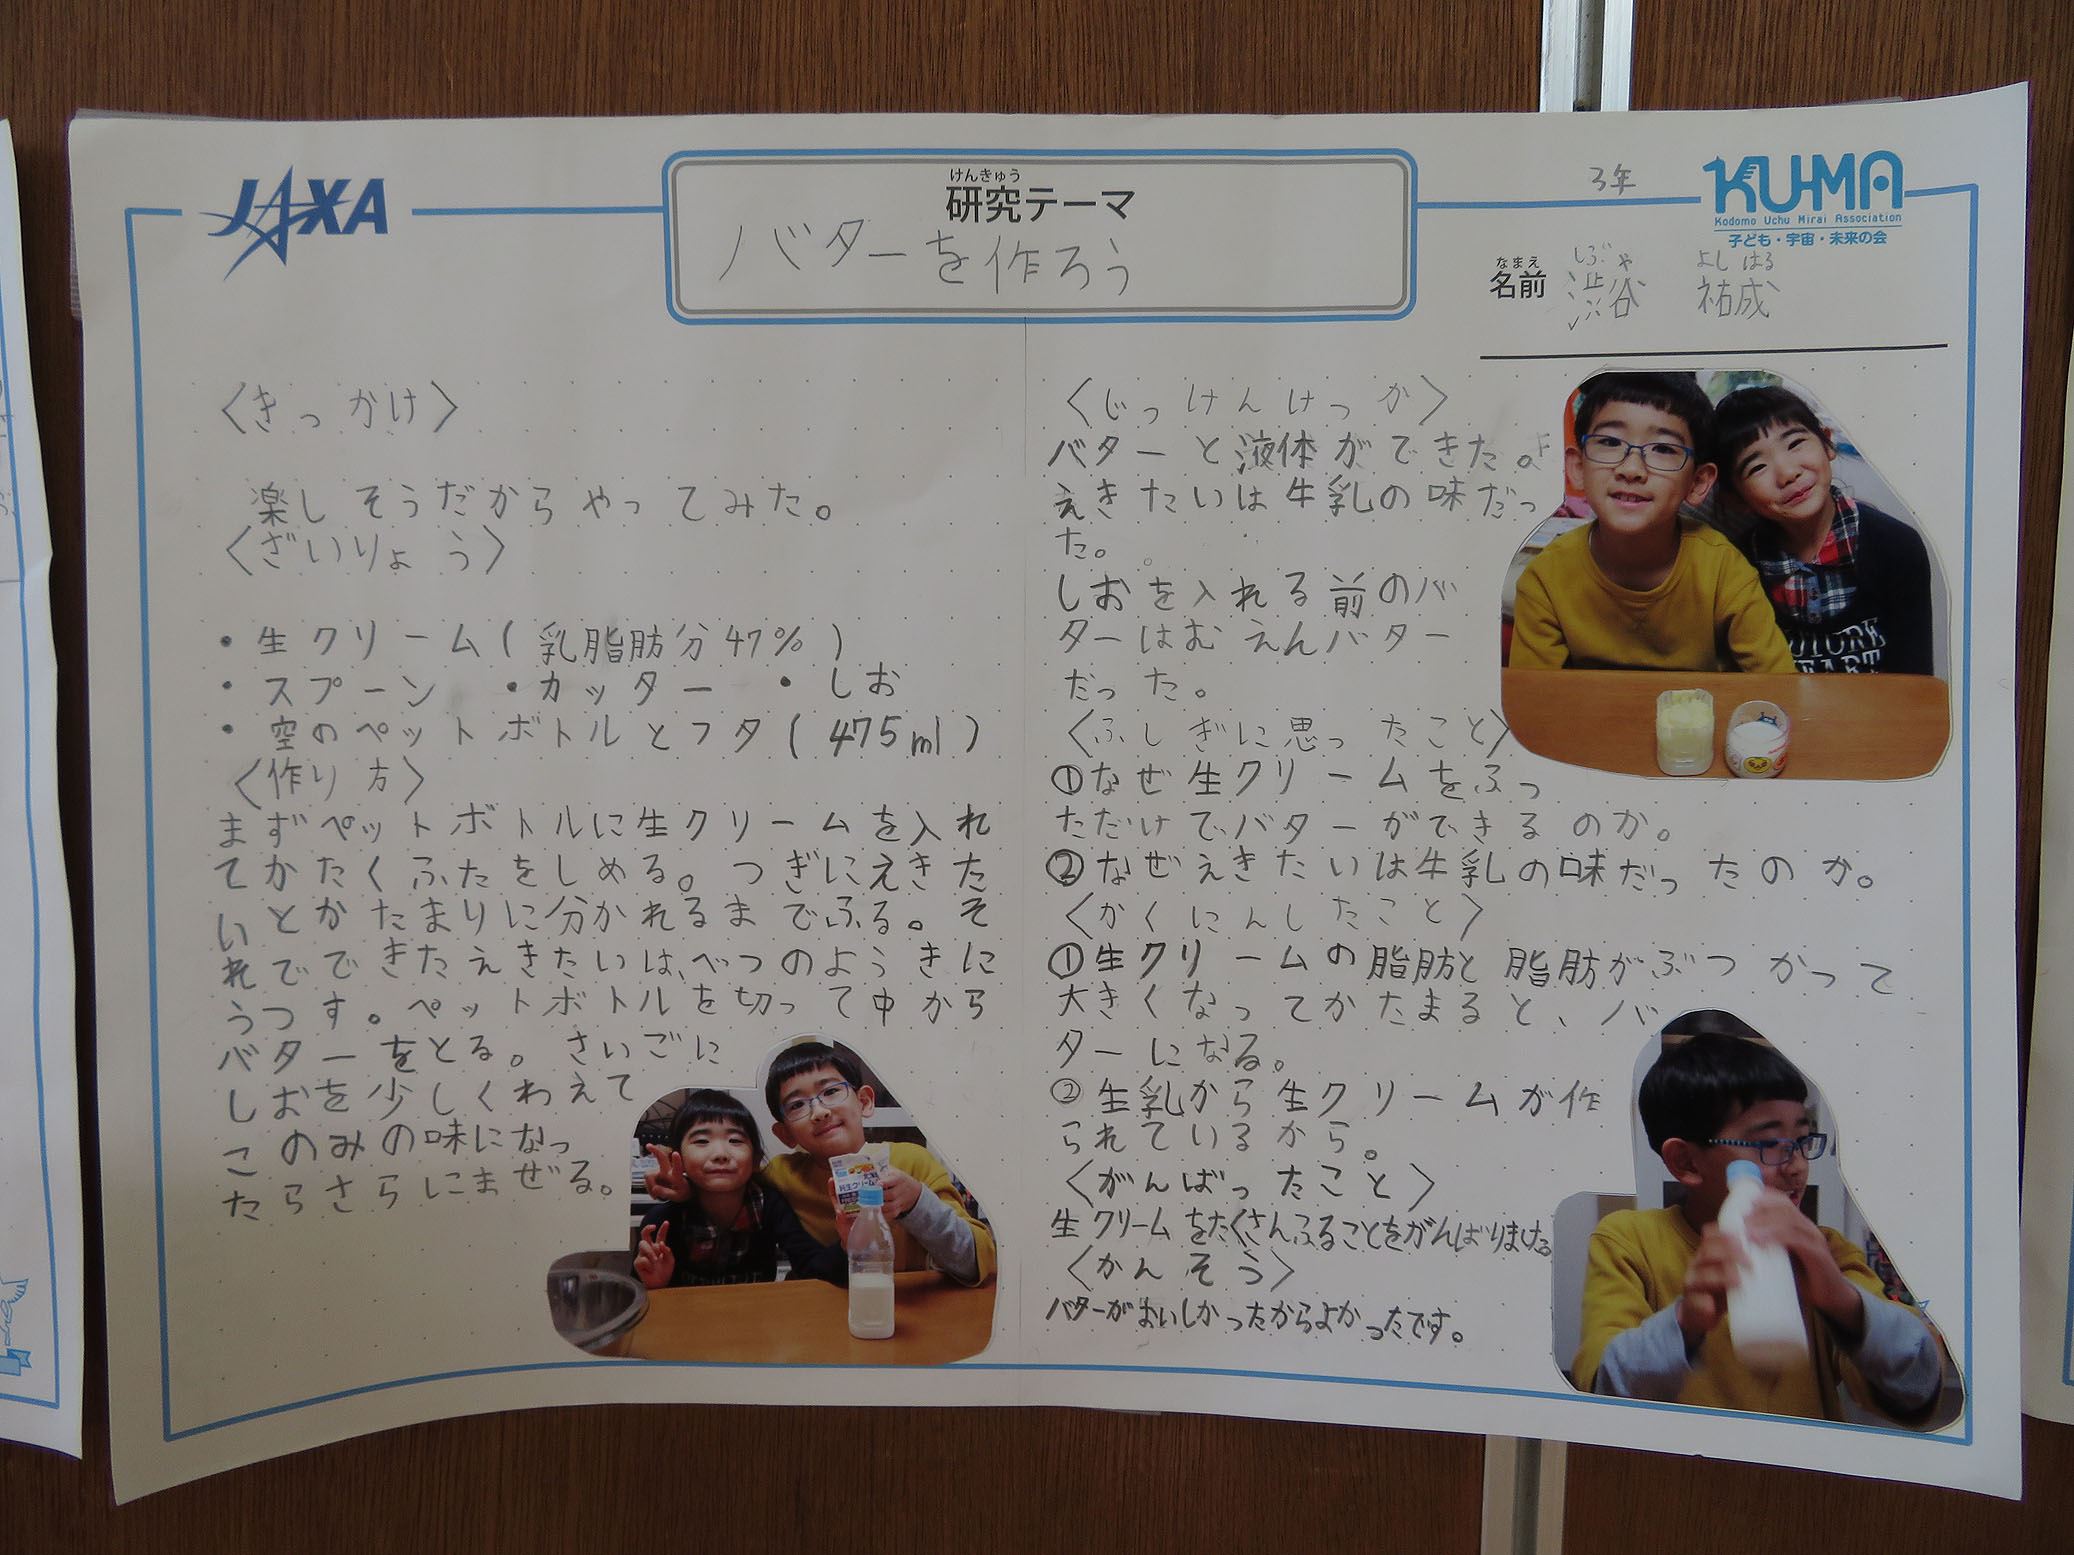 JAXA
けんきゅう
研究テーマ
バターを作ろう
3年
KU-MA
Kodomo Uchu Mirai Association
子ども・宇宙・未来の会
なまえ しぶ や よし はる
名前 渋谷 祐成
〈きっかけ〉
楽しそうだからやってみた。
〈ざいりょう〉
・生クリーム(乳脂肪分47%)
・スプーン ・カッター ・しお
・空のペットボトルとフタ(475ml)
〈作り方〉
まずペットボトルに生クリームを入れ
てかたくふたをしめる。つぎにえきた
いとかたまりに分かれるまでふる。そ
れでできたえきたいは、べつのようきに
うつす。ペットボトルを切って中から
バターをとる。さいごに
しおを少しくわえて
このみの味になっ
たらさらにまぜる。
〈じっけんけっか〉
バターと液体ができた。
えきたいは牛乳の味だっ
た。
しおを入れる前のバ
ターはむえんバター
だった。
〈ふしぎに思ったこと〉
①なぜ生クリームをふっ
ただけでバターができるのか。
②なぜえきたいは牛乳の味だったのか。
〈かくにんしたこと〉
①生クリームの脂肪と脂肪がぶつかって
大きくなってかたまると、バ
ターになる。
②生乳から生クリームが作
られているから。
〈がんばったこと〉
生クリームをたくさんふることをがんばりました
〈かんそう〉
バターがおいしかったからよかったです。